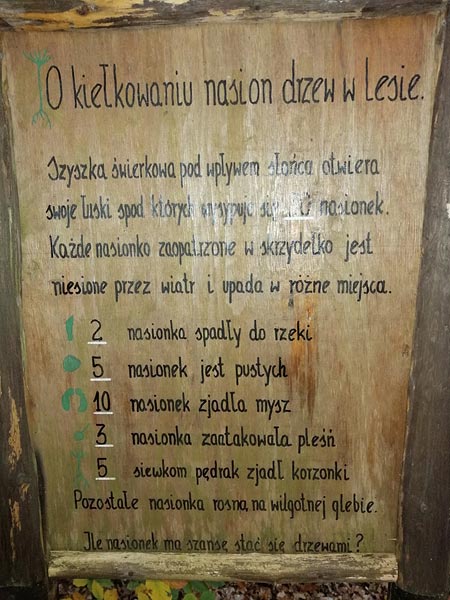 O kiełkowaniu nasion drzew w lesie.
Szyszka świerkowa pod wpływem słońca otwiera
swoje łuski spod których wysypuje się nasionek.
Każde nasionko zaopatrzone w skrzydełko jest
niesione przez wiatr i upada w różne miejsca.
2 nasionka spadły do rzeki
5 nasionek jest pustych
10 nasionek zjadła mysz
3 nasionka zaatakowała pleśń
5 siewkom pędrak zjadł korzonki
Pozostałe nasionka rosną na wilgotnej glebie.
Ile nasionek ma szansę stać się drzewami?